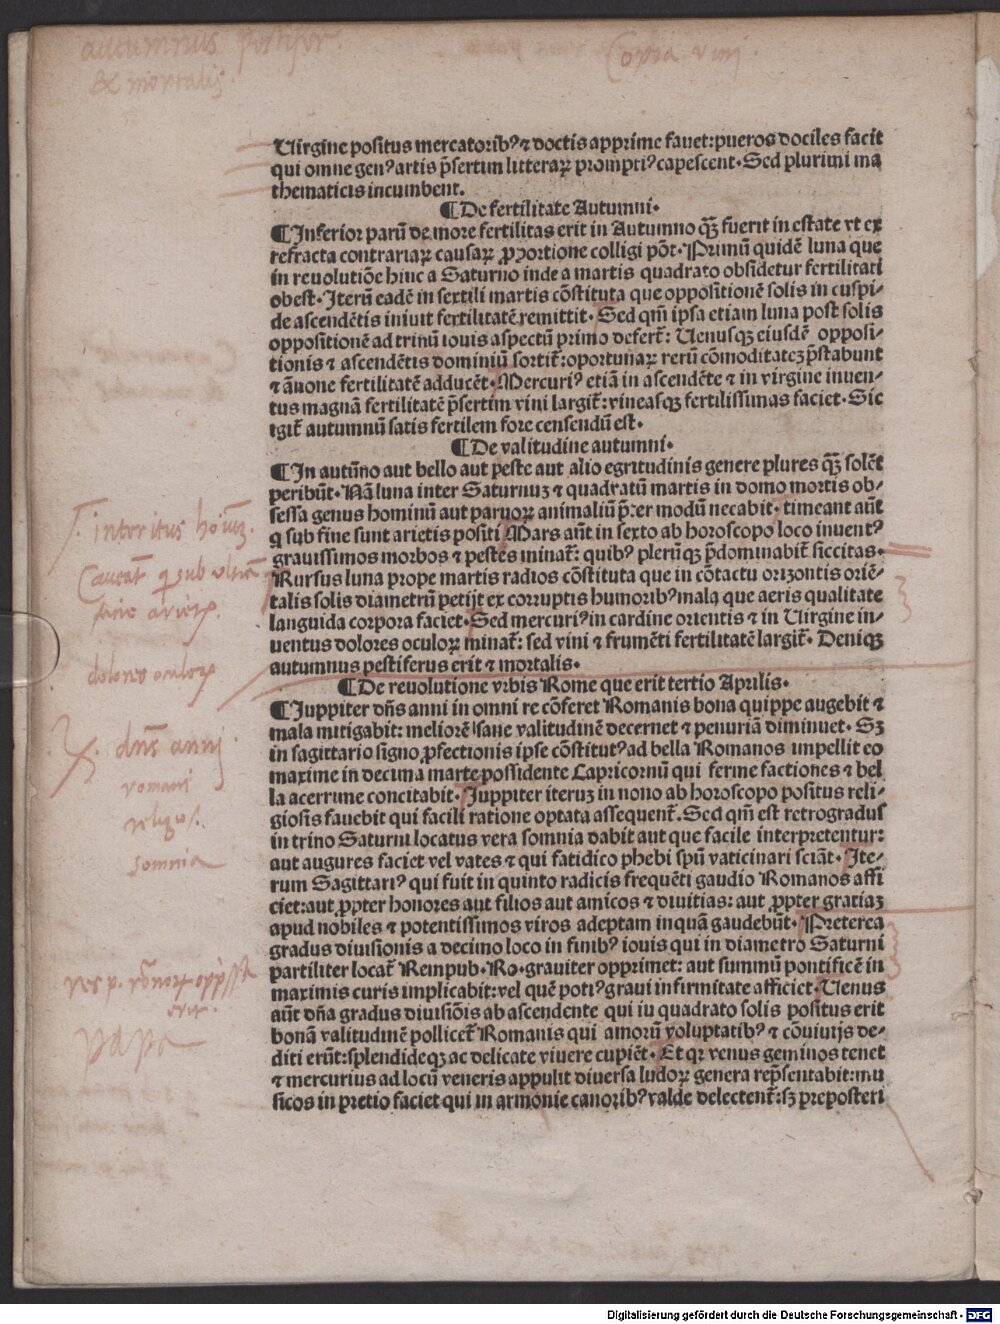 autumnus pestifer.
& mortalis.
Copia vini.
Uirgine positus mercatoribꝰ ⁊ doctis apprime fauet:pueros dociles facit
qui omne genꝰ artis p̃sertim litteraꝝ promptiꝰ capescent·Sed plurimi ma
thematicis incumbent.
¶De fertilitate Autumni·
¶Inferior parū de more fertilitas erit in Autumno qȝ̃ fuerit in estate vt ex
refracta contrariaꝝ causaꝝ ꝓportione colligi põt·Primū quidē luna que
in reuolutiōe hinc a Saturno inde a martis quadrato obsidetur fertilitati
obest·Iterū eadē in sextili martis cōstituta que oppositionē solis in cuspi-
de ascendētis iniuit fertilitatē remittit·Sed qm̃ ipsa etiam luna post solis
oppositionē ad trinū iouis aspectū primo defert̃: Uenusqȝ eiusdē opposi-
tionis ⁊ ascendētis dominiū sortit̃:oportunaꝝ rerū cōmoditateȝ p̃stabunt
⁊ ānone fertilitatē adducēt·Mercuriꝰ etiā in ascendēte ⁊ in virgine inuen-
tus magnā fertilitatē p̃sertim vini largit̃:vineasqȝ fertilissimas faciet·Sic
igit̃ autumnū satis fertilem fore censendū est·
¶De valitudine autumni·
¶In autūno aut bello aut peste aut alio egritudinis genere plures qȝ̃ solēt
peribūt·Nā luna inter Saturnuȝ ⁊ quadratū martis in domo mortis ob-
sessa genus hominū aut paruoꝝ animaliū p̃ter modū necabit·timeant aūt
q̄ sub fine sunt arietis positi Mars aūt in sexto ab horoscopo loco inuentꝰ
grauissimos morbos ⁊ pestes minat̃: quibꝰ plerūqȝ p̃dominabit̃ siccitas·
Rursus luna prope martis radios cōstituta que in cōtactu orizontis oriē-
talis solis diametrū petijt ex corruptis humoribꝰ malaqȝ aeris qualitate
languida corpora faciet·Sed mercuriꝰ in cardine orientis ⁊ in Uirgine in-
uentus dolores oculoꝝ minat̃: sed vini ⁊ frumēti fertilitatē largit̃· Deniqȝ
autumnus pestiferus erit ⁊ mortalis·
¶De reuolutione vrbis Rome que erit tertio Aprilis·
¶Juppiter dñs anni in omni re cōferet Romanis bona quippe augebit ⁊
mala mitigabit: meliorē sane valitudinē decernet ⁊ penuriā diminuet· Sȝ
in sagittario signo ꝓfectionis ipse cōstitutꝰ ad bella Romanos impellit eo
maxime in decima marte possidente Capricornū qui ferme factiones ⁊ bel
la acerrime concitabit·Juppiter iteruȝ in nono ab horoscopo positus reli-
giosis fauebit qui facili ratione optata assequent̃·Sed qm̃ est retrogradus
in trino Saturni locatus vera somnia dabit aut que facile interpretentur:
aut augures faciet vel vates ⁊ qui fatidico phebi spū vaticinari sciāt·Ite-
rum Sagittariꝰ qui fuit in quinto radicis frequēti gaudio Romanos affi
ciet:aut ꝓpter honores aut filios aut amicos ⁊ diuitias: aut ꝓpter gratiaȝ
apud nobiles ⁊ potentissimos viros adeptam inquā gaudebūt·Preterea
gradus diuisionis a decimo loco in finibꝰ iouis qui in diametro Saturni
partiliter locat̃ Rempub·Ro·grauiter opprimet: aut summū pontificē in
maximis curis implicabit:vel quē potiꝰ graui infirmitate afficiet·Uenus
aūt dña gradus diuisiōis ab ascendente qui in quadrato solis positus erit
bonā valitudinē pollicet̃ Romanis qui amorū voluptatibꝰ ⁊ cōuiuijs de-
diti erūt:splendideqȝ ac delicate viuere cupiēt·Et qꝛ venus geminos tenet
⁊ mercurius ad locū veneris appulit diuersa ludoꝝ genera rep̃sentabit:mu
sicos in pretio faciet qui in armonie canoribꝰ valde delectent̃:sȝ preposteri
interitus hoīuȝ.
Caueāt q̄ sub
fine arietis.
dolores oculoꝝ
♃. dñs anni
romani
religiosi.
somnia
erit.
papa
Digitalisierung gefördert durch die Deutsche Forschungsgemeinschaft - DFG